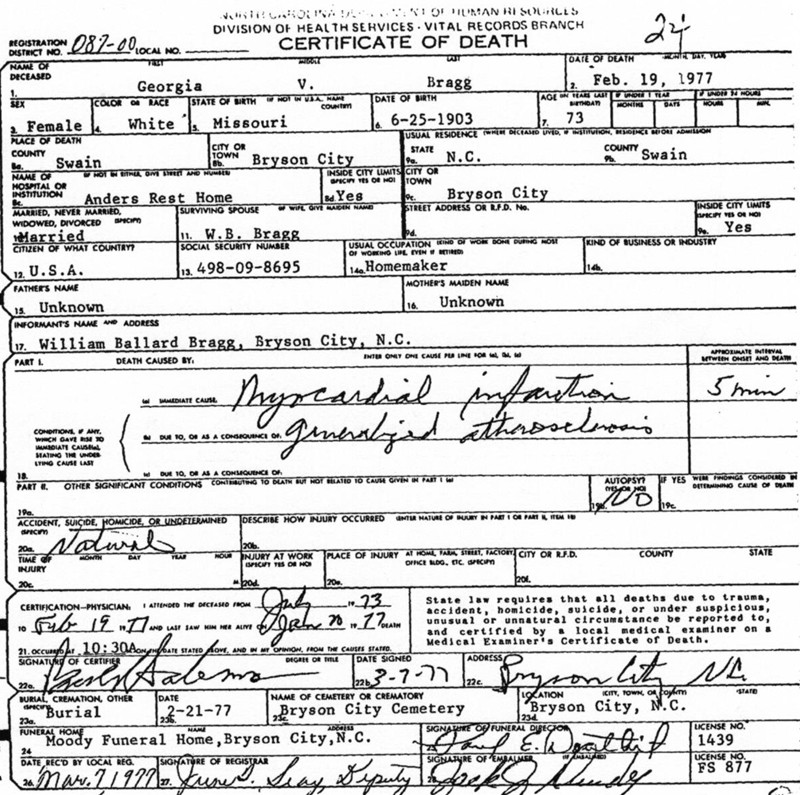 NORTH CAROLINA DEPARTMENT OF HUMAN RESOURCES
DIVISION OF HEALTH SERVICES - VITAL RECORDS BRANCH
CERTIFICATE OF DEATH
24
REGISTRATION DISTRICT NO. 087-00 LOCAL NO.
NAME OF DECEASED FIRST MIDDLE LAST
1. Georgia V. Bragg
DATE OF DEATH MONTH, DAY, YEAR
2. Feb. 19, 1977
SEX
3. Female
COLOR OR RACE
4. White
STATE OF BIRTH (IF NOT IN U.S.A., NAME COUNTRY)
5. Missouri
DATE OF BIRTH
6. 6-25-1903
AGE (IN YEARS LAST BIRTHDAY)
7. 73
IF UNDER 1 YEAR
MONTHS DAYS
IF UNDER 24 HOURS
HOURS MIN.
PLACE OF DEATH
COUNTY
8a. Swain
CITY OR TOWN
8b. Bryson City
USUAL RESIDENCE (WHERE DECEASED LIVED, IF INSTITUTION, RESIDENCE BEFORE ADMISSION
STATE
9a. N.C.
COUNTY
9b. Swain
NAME OF HOSPITAL OR INSTITUTION (IF NOT IN EITHER, GIVE STREET AND NUMBER)
8c. Anders Rest Home
INSIDE CITY LIMITS (SPECIFY YES OR NO)
8d. Yes
CITY OR TOWN
9c. Bryson City
MARRIED, NEVER MARRIED, WIDOWED, DIVORCED (SPECIFY)
Married
SURVIVING SPOUSE (IF WIFE, GIVE MAIDEN NAME)
11. W.B. Bragg
STREET ADDRESS OR R.F.D. No.
9d.
INSIDE CITY LIMITS (SPECIFY YES OR NO)
9e. Yes
CITIZEN OF WHAT COUNTRY?
12. U.S.A.
SOCIAL SECURITY NUMBER
13. 498-09-8695
USUAL OCCUPATION (KIND OF WORK DONE DURING MOST OF WORKING LIFE, EVEN IF RETIRED)
14a. Homemaker
KIND OF BUSINESS OR INDUSTRY
14b.
FATHER'S NAME
15. Unknown
MOTHER'S MAIDEN NAME
16. Unknown
INFORMANT'S NAME AND ADDRESS
17. William Ballard Bragg, Bryson City, N.C.
PART I. DEATH CAUSED BY: ENTER ONLY ONE CAUSE PER LINE FOR (a), (b), (c)
APPROXIMATE INTERVAL BETWEEN ONSET AND DEATH
(a) IMMEDIATE CAUSE Myocardial infarction 5 min
CONDITIONS, IF ANY, WHICH GAVE RISE TO IMMEDIATE CAUSE(a), STATING THE UNDERLYING CAUSE LAST
(b) DUE TO, OR AS A CONSEQUENCE OF: generalized atherosclerosis
18. (c) DUE TO, OR AS A CONSEQUENCE OF:
PART II. OTHER SIGNIFICANT CONDITIONS CONTRIBUTING TO DEATH BUT NOT RELATED TO CAUSE GIVEN IN PART I (a)
19a.
AUTOPSY? (YES OR NO)
19b. NO
IF YES WERE FINDINGS CONSIDERED IN DETERMINING CAUSE OF DEATH
19c.
ACCIDENT, SUICIDE, HOMICIDE, OR UNDETERMINED (SPECIFY)
20a. Natural
DESCRIBE HOW INJURY OCCURRED (ENTER NATURE OF INJURY IN PART I OR PART II, ITEM 18)
20b.
TIME OF INJURY MONTH DAY YEAR HOUR
20c. M
INJURY AT WORK (SPECIFY YES OR NO)
20d.
PLACE OF INJURY AT HOME, FARM, STREET, FACTORY, OFFICE BLDG., ETC. (SPECIFY)
20e.
CITY OR R.F.D. COUNTY STATE
20f.
CERTIFICATION-PHYSICIAN: I ATTENDED THE DECEASED FROM July 1973
TO Feb 19 1977 AND LAST SAW HIM HER ALIVE ON Jan 20 1977 DEATH
21. OCCURRED AT 10:30A ON THE DATE STATED ABOVE, AND IN MY OPINION, FROM THE CAUSES STATED.
State law requires that all deaths due to trauma,
accident, homicide, suicide, or under suspicious,
unusual or unnatural circumstance be reported to,
and certified by a local medical examiner on a
Medical Examiner's Certificate of Death.
SIGNATURE OF CERTIFIER DEGREE OR TITLE
22a.
DATE SIGNED
22b. 3-7-77
ADDRESS
22c. Bryson City NC
BURIAL, CREMATION, OTHER (SPECIFY)
23a. Burial
DATE
23b. 2-21-77
NAME OF CEMETERY OR CREMATORY
23c. Bryson City Cemetery
LOCATION (CITY, TOWN, OR COUNTY) (STATE)
23d. Bryson City, N.C.
FUNERAL HOME NAME ADDRESS
24 Moody Funeral Home, Bryson City, N.C.
SIGNATURE OF FUNERAL DIRECTOR
LICENSE NO.
1439
DATE REC'D BY LOCAL REG.
26. Mar. 7 1977
SIGNATURE OF REGISTRAR
27. Seay, Deputy
SIGNATURE OF EMBALMER (IF EMBALMED)
LICENSE NO.
FS 877